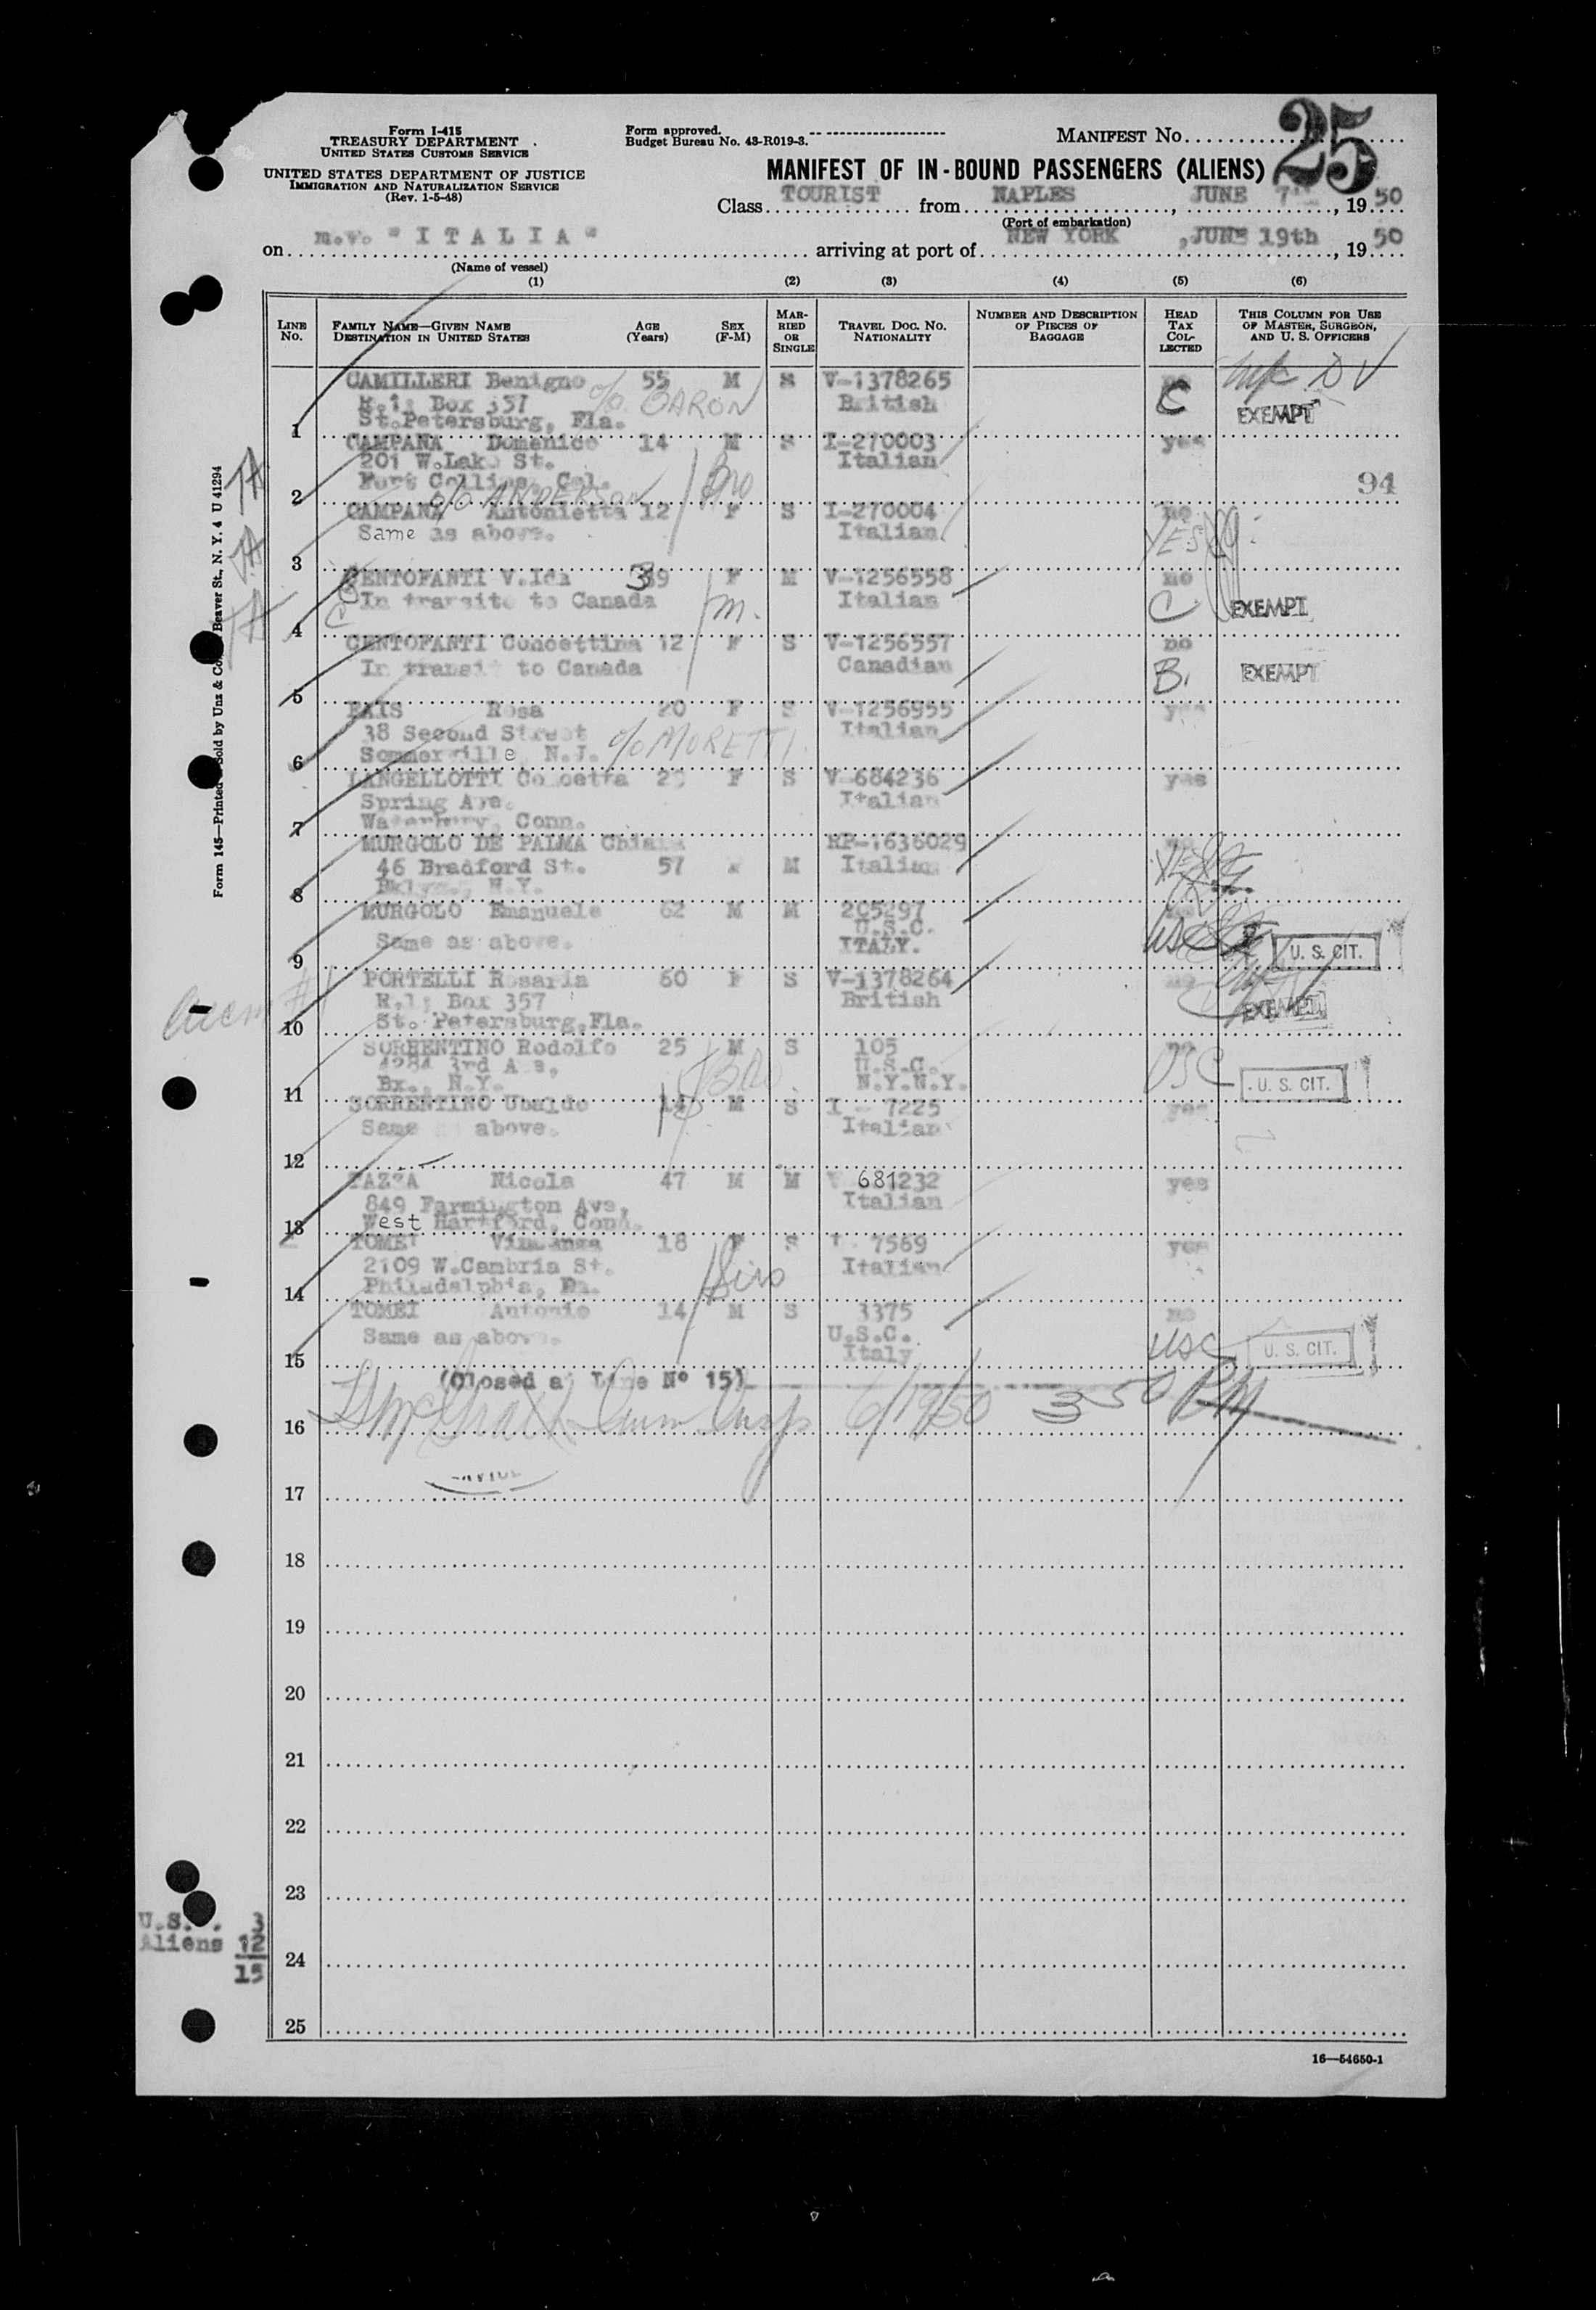 Form I-415
TREASURY DEPARTMENT
UNITED STATES CUSTOMS SERVICE
UNITED STATES DEPARTMENT OF JUSTICE
IMMIGRATION AND NATURALIZATION SERVICE
(Rev. 1-5-48)
Form approved.
Budget Bureau No. 43-R019-3.
MANIFEST No. 25
MANIFEST OF IN-BOUND PASSENGERS (ALIENS)
Class TOURIST from NAPLES, JUNE 7th, 1950
(Port of embarkation)
on m.v. "ITALIA" arriving at port of NEW YORK, JUNE 19th, 1950
(Name of vessel)
(1) (2) (3) (4) (5) (6)
LINE No. FAMILY NAME—GIVEN NAME DESTINATION IN UNITED STATES AGE (Years) SEX (F-M) MARRIED OR SINGLE TRAVEL DOC. NO. NATIONALITY NUMBER AND DESCRIPTION OF PIECES OF BAGGAGE HEAD TAX COLLECTED THIS COLUMN FOR USE OF MASTER, SURGEON, AND U. S. OFFICERS
CAMILLERI Benigno 55 M S V-1378265 no
R.1; Box 357 c/o CARON British C EXEMPT
St.Petersburg, Fla.
1
CAMPANA Domenico 14 M S I-270003 yes
201 W.Lake St. Italian
Fort Collins, Col. Bro 94
2 c/o ANDERSON
CAMPANA Antonietta 12 F S I-270004 no
Same as above. Italian YES
3
CENTOFANTI V.Ida 39 F M V-1256558 no
In transite to Canada m. Italian C EXEMPT
4
CENTOFANTI Concettina 12 F S V-1256557 no
In transit to Canada Canadian B. EXEMPT
5
EXIS Rosa 20 F S V-1256955 yes
38 Second Street Italian
Sommerville, N.J. c/o MORETTI
6
LANGELLOTTI Concetta F S V-684236 yes
Spring Ave. Italian
Waterbury, Conn.
7
MURGOLO DE PALMA Chiara RP-1636029 no
46 Bradford St. 57 F M Italian YES
Bklyn., N.Y.
8
MURGOLO Emanuele 62 M M 205297 no
U.S.C.
Same as above. ITALY. USC U. S. CIT.
9
PORTELLI Rosaria 60 F S V-1378264 no
R.1; Box 357 British EXEMPT
St. Petersburg,Fla.
10
SORRENTINO Rodolfo 25 M S 105 no
4284 3rd Ave, U.S.C.
Bx., N.Y. Bro. N.Y.N.Y. USC U. S. CIT.
11
SORRENTINO Ubaldo 18 M S I - 7225 yes
Same as above. Italian
12
Nicola 47 M M V 681232 yes
849 Farmington Ave, Italian
West Hartford, Conn.
13
TOMEI 18 F S I- 7569 yes
2109 W.Cambria St. Italian
Philadelphia, Pa. Sis
14
TOMEI Antonio 14 M S 3375 no
Same as above. U.S.C.
Italy USC U. S. CIT.
15
(Closed at Line Nº 15)
6/19/50 3 50 PM
16
17
18
19
20
21
22
23
24
25
U.S.C. 3
Aliens 12
15
16—54650-1
Form 145—Printed & Sold by Unz & Co. Beaver St., N. Y. 4 U 41294